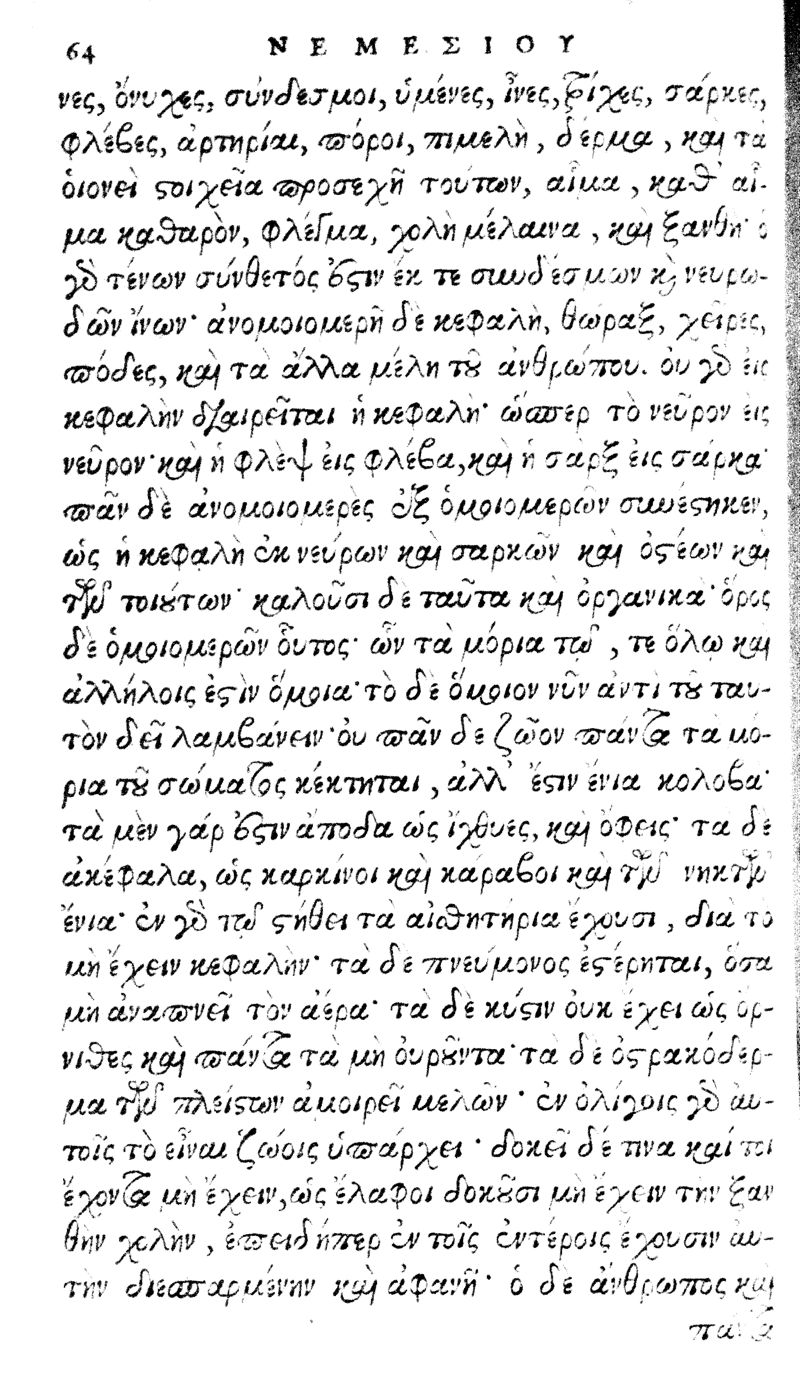 64 ΝΕΜΕΣΙΟΥ
νες, ὄνυχες, σύνδεσμοι, ὑμένες, ἶνες, τρίχες, σάρκες,
φλέβες, ἀρτηρίαι, πόροι, πιμελὴ, δέρμα, καὶ τὰ
ὁιονεὶ στοιχεῖα προσεχῆ τούτων, αἷμα, καθ' αἷ-
μα καθαρὸν, φλέγμα, χολὴ μέλαινα, καὶ ξανθή· ὁ
γὸ τένων σύνθετός ἐστιν ἐκ τε συνδέσμων κ νευρω-
δῶν ἴνων· ἀνομοιομερῆ δὲ κεφαλὴ, θώραξ, χεῖρες,
πόδες, καὶ τὰ ἄλλα μέλη τοῦ ἀνθρώπου. ὀυ γὸ ἐις
κεφαλὴν διαιρεῖται ἡ κεφαλὴ· ὥσπερ τὸ νεῦρον ἐις
νεῦρον· καὶ ἡ φλὲψ ἐις φλέβα, καὶ ἡ σὰρξ ἐις σάρκα·
πᾶν δὲ ἀνομοιομερὲς ἐξ ὁμοιομερῶν συνέστηκεν,
ὡς ἡ κεφαλὴ ἐκ νεύρων καὶ σαρκῶν καὶ ὀστέων καὶ
τῶν τοιούτων· καλοῦσι δὲ ταῦτα καὶ ὀργανικά· ὅρος
δὲ ὁμοιομερῶν οὗτος· ὧν τὰ μόρια τῷ, τε ὅλῳ καὶ
ἀλλήλοις ἐστὶν ὅμοια· τὸ δὲ ὅμοιον νῦν ἀντὶ τοῦ ταυ-
τὸν δεῖ λαμβάνειν· ὀυ πᾶν δὲ ζῶον πάντα τὰ μό-
ρια τοῦ σώματος κέκτηται, ἀλλ' ἔστιν ἔνια κολοβά·
τὰ μὲν γάρ ἐστιν ἄποδα ὡς ἰχθυὲς, καὶ ὄφεις· τὰ δὲ
ἀκέφαλα, ὡς καρκίνοι καὶ κάραβοι καὶ τῶν νηκτῶν
ἔνια· ἐν γὸ τῷ στήθει τὰ αἰσθητήρια ἔχουσι, διὰ τὸ
μὴ ἔχειν κεφαλὴν· τὰ δὲ πνεύμονος ἐστέρηται, ὅσα
μὴ ἀναπνεῖ τὸν ἀέρα· τὰ δὲ κύστιν ὀυκ ἔχει ὡς ὄρ-
νιθες καὶ πάντα τὰ μὴ ὀυροῦντα· τὰ δὲ ὀστρακόδερ-
μα τῶν πλείστων ἀμοιρεῖ μελῶν· ἐν ὀλίγοις γὸ ἀυ-
τοῖς τὸ εἶναι ζώοις ὑπάρχει· δοκεῖ δέ τινα καί τοι
ἔχοντα μὴ ἔχειν, ὡς ἔλαφοι δοκοῦσι μὴ ἔχειν τὴν ξαν
θὴν χολὴν, ἐπειδήπερ ἐν τοῖς ἐντέροις ἔχουσιν ἀυ-
τὴν διεσπαρμένην καὶ ἀφανῆ· ὁ δὲ ἄνθρωπος καὶ
πάντα